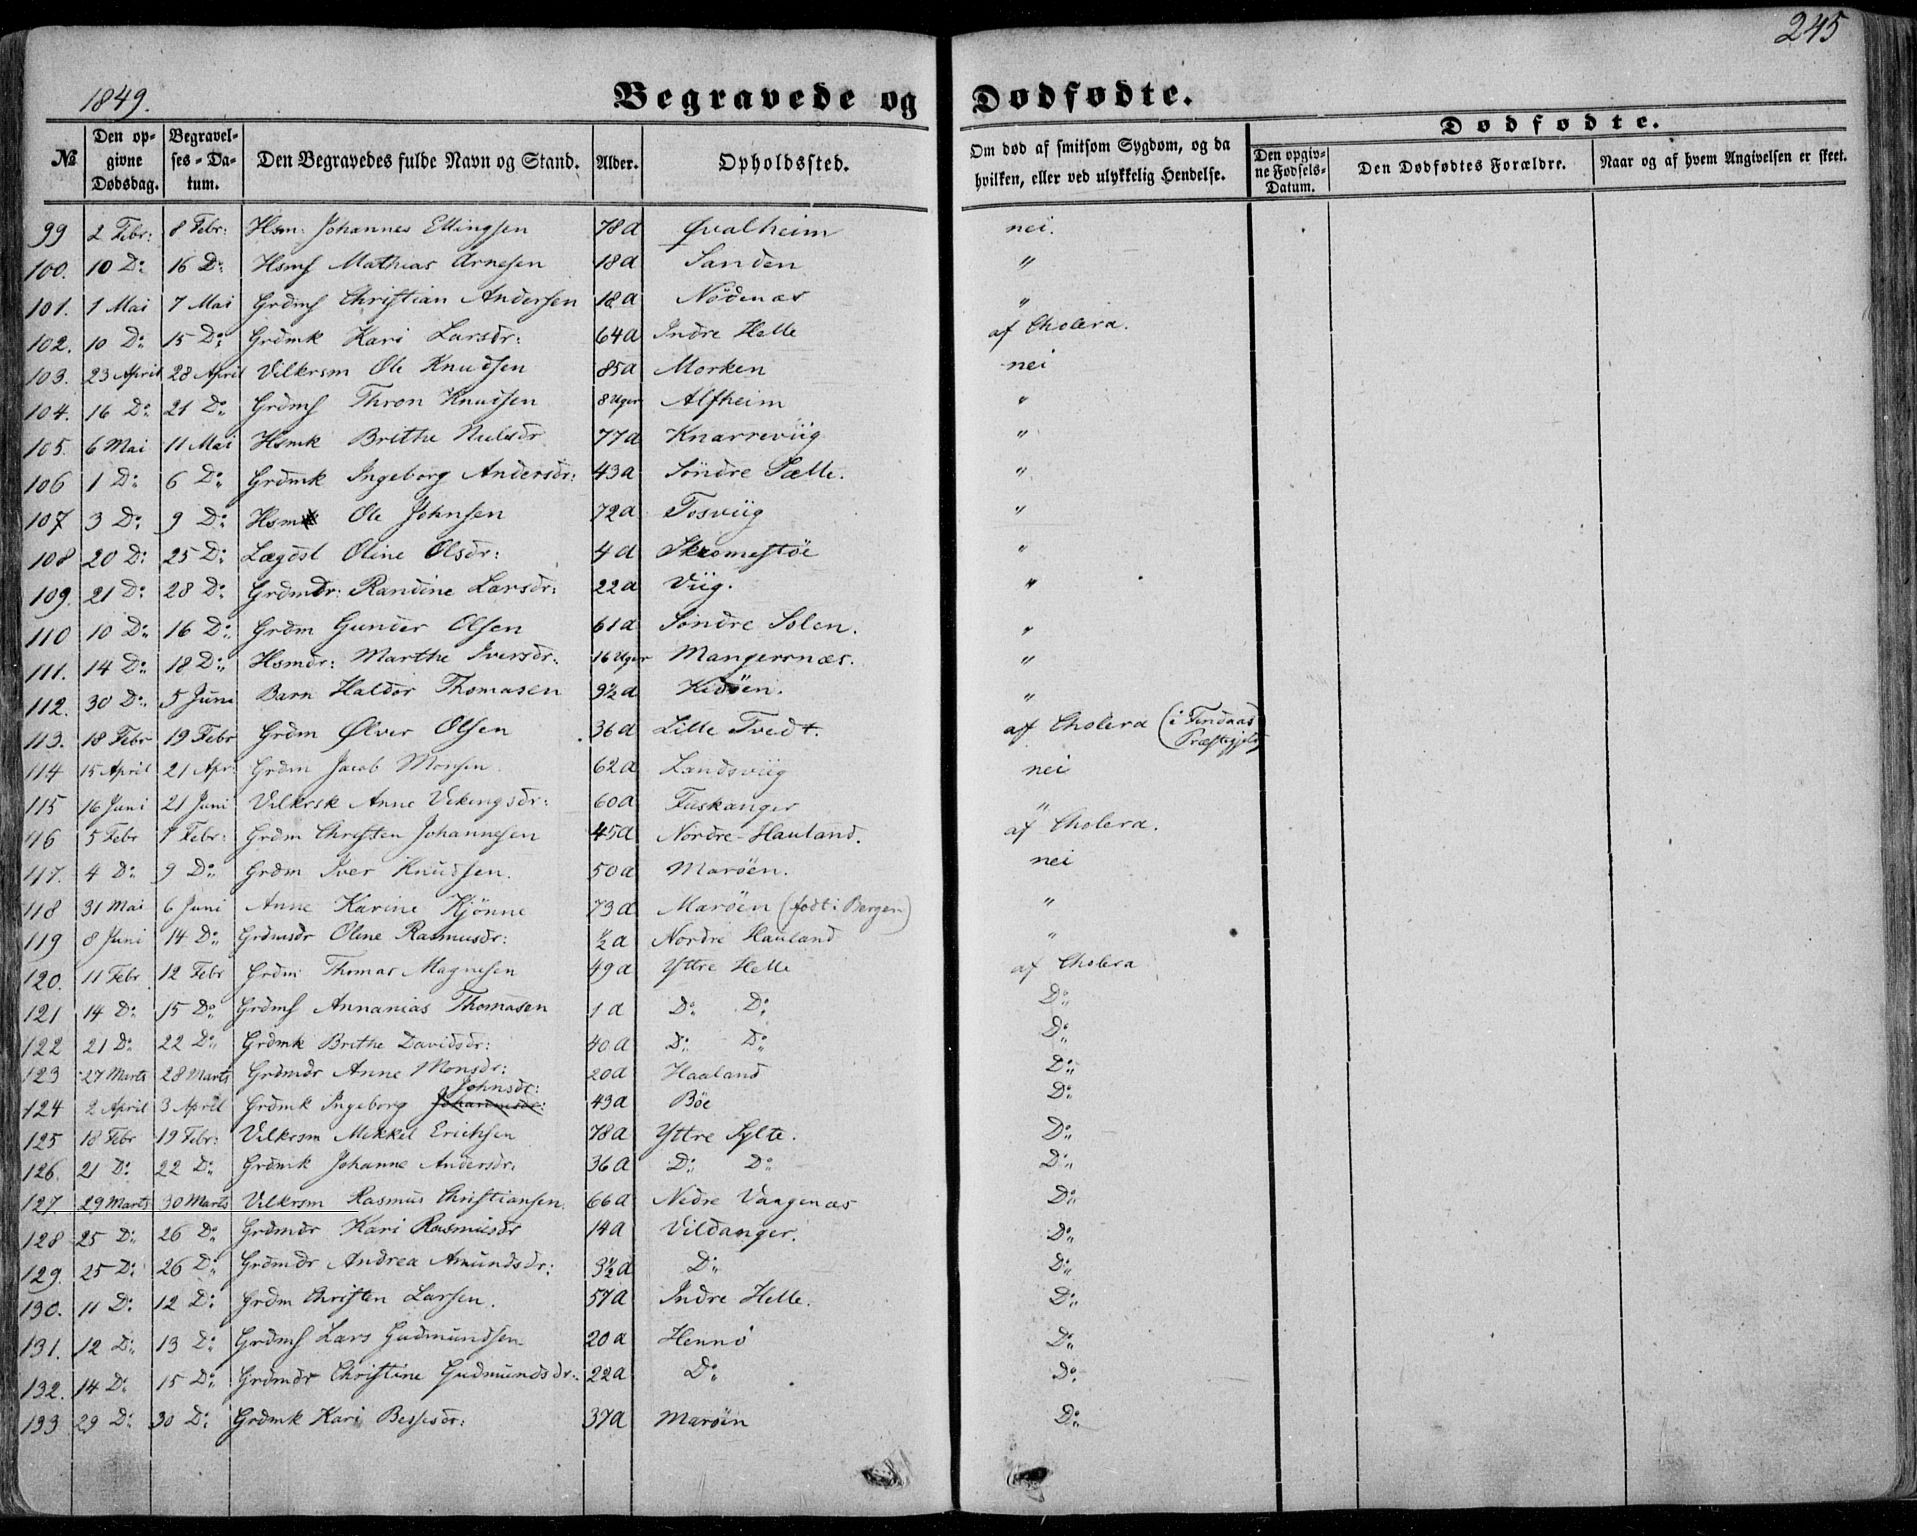 245
1849.
Begravede og Dødfødte.
Dødfødte.
No. Den opgivne Dødsdag. Begravelses-Datum. Den Begravedes fulde Navn og Stand. Alder. Opholdssted. Om død af smitsom Sygdom, og da hvilken, eller ved ulykkelig Hendelse. Den opgivne Fødsels-Datum. Den Dødfødtes Forældre. Naar og af hvem Angivelsen er skeet.
99 2 Febr: 8 Febr: Hsm: Johannes Ellingsen 78a Qvalheim nei.
100. 10 Do 16 Do Hsmf Mathias Arnesen 18a Sanden "
101. 1 Mai 7 Mai Grdmf Christian Andersen 18a Nödenæs "
102. 10 Do 15 Do Grdmk Kari Larsdr: 64a Indre Helle af Cholera.
103. 23 April 28 April Vilkrsm Ole Knudsen 85a Morken nei
104. 16 Do 21 Do Grdmf Thron Knudsen 8 Uger Alfheim "
105. 6 Mai 11 Mai Hsmk Brithe Nielsdr 77a Knarreviig "
106 1 Do 6 Do Grdmk Ingeborg Andersdr: 43a Söndre Sælle. "
107 3 Do 9 Do Hsm Ole Johnsen 72a Tosviig "
108 20 Do 25 Do Lægdsl Oline Olsdr: 4a Skromestöe "
109. 21 Do 28 Do Grdmdr: Randine Larsdr: 22a Viig. "
110 10 Do 16 Do Grdm Gunder Olsen 61a Söndre Solen. "
111. 14 Do 18 Do Hsmdr: Marthe Iversdr: 16 Uger Mangersnæs. "
112. 30 Do 5 Juni Barn Haldor Thomasen 9½a Kidöen. "
113. 18 Febr 19 Febr Grdm Ølver Olsen 36a Lille Tvedt. af Cholera (i Lindaas Præstegjeld)
114 15 April 21 Apr: Grdm Jacob Monsen. 62a Landsviig nei
115 16 Juni 21 Juni Vilkrsk Anne Vikingsdr: 60a Fuskanger "
116 5 Febr 7 Febr: Grdm Christen Johannesen 45a Nordre-Hauland. af Cholera.
117. 4 Do 9 Do Grdm Iver Knudsen. 50a Maröen. nei
118 31 Mai 6 Juni Anne Karine Kjönne 73a Maröen (födt i Bergen) "
119 8 Juni 14 Do Grdmsdr Oline Rasmusdr: ½a Nordre Hauland "
120. 11 Febr 12 Febr Grdm Thomas Magnesen 49a Yttre Helle af Cholera
121 14 Do 15 Do Grdmf Annanias Thomasen 1a Do Do Do
122 21 Do 22 Do Grdmk Brithe Davidsdr: 40a Do Do Do
123 27 Marts 28 Marts Grdmdr Anne Monsdr: 20a Haaland Do
Johnsdr:
124 2 April 3 April Grdmk Ingeborg 43a Böe Do
125 18 Febr 19 Febr: Vilkrsm Mikkel Erichsen 78a Yttre Sylte. Do
126. 21 Do 22 Do Grdmk Johanne Andersdr: 36a Do Do Do
127. 29 Marts 30 Marts Vilkrsm Rasmus Christiansen. 66a Nedre Vaagenæs Do
128 25 Do 26 Do Grdmdr Kari Rasmusdr 14a Vildanger. Do
129. 25 Do 26 Do Grdmdr Andrea Amundsdr: 3½a Do Do
130. 11 Do 12 Do Grdm Christen Larsen. 57a Indre Helle. Do
131. 12 Do 13 Do Grdmf Lars Gudmundsen 20a Hennö Do
132. 14 Do 15 Do Grdmdr Christine Gudmundsdr: 22a Do Do
133 29 Do 30 Do Grdmk Kari Bessesdr: 37a Maröen Do